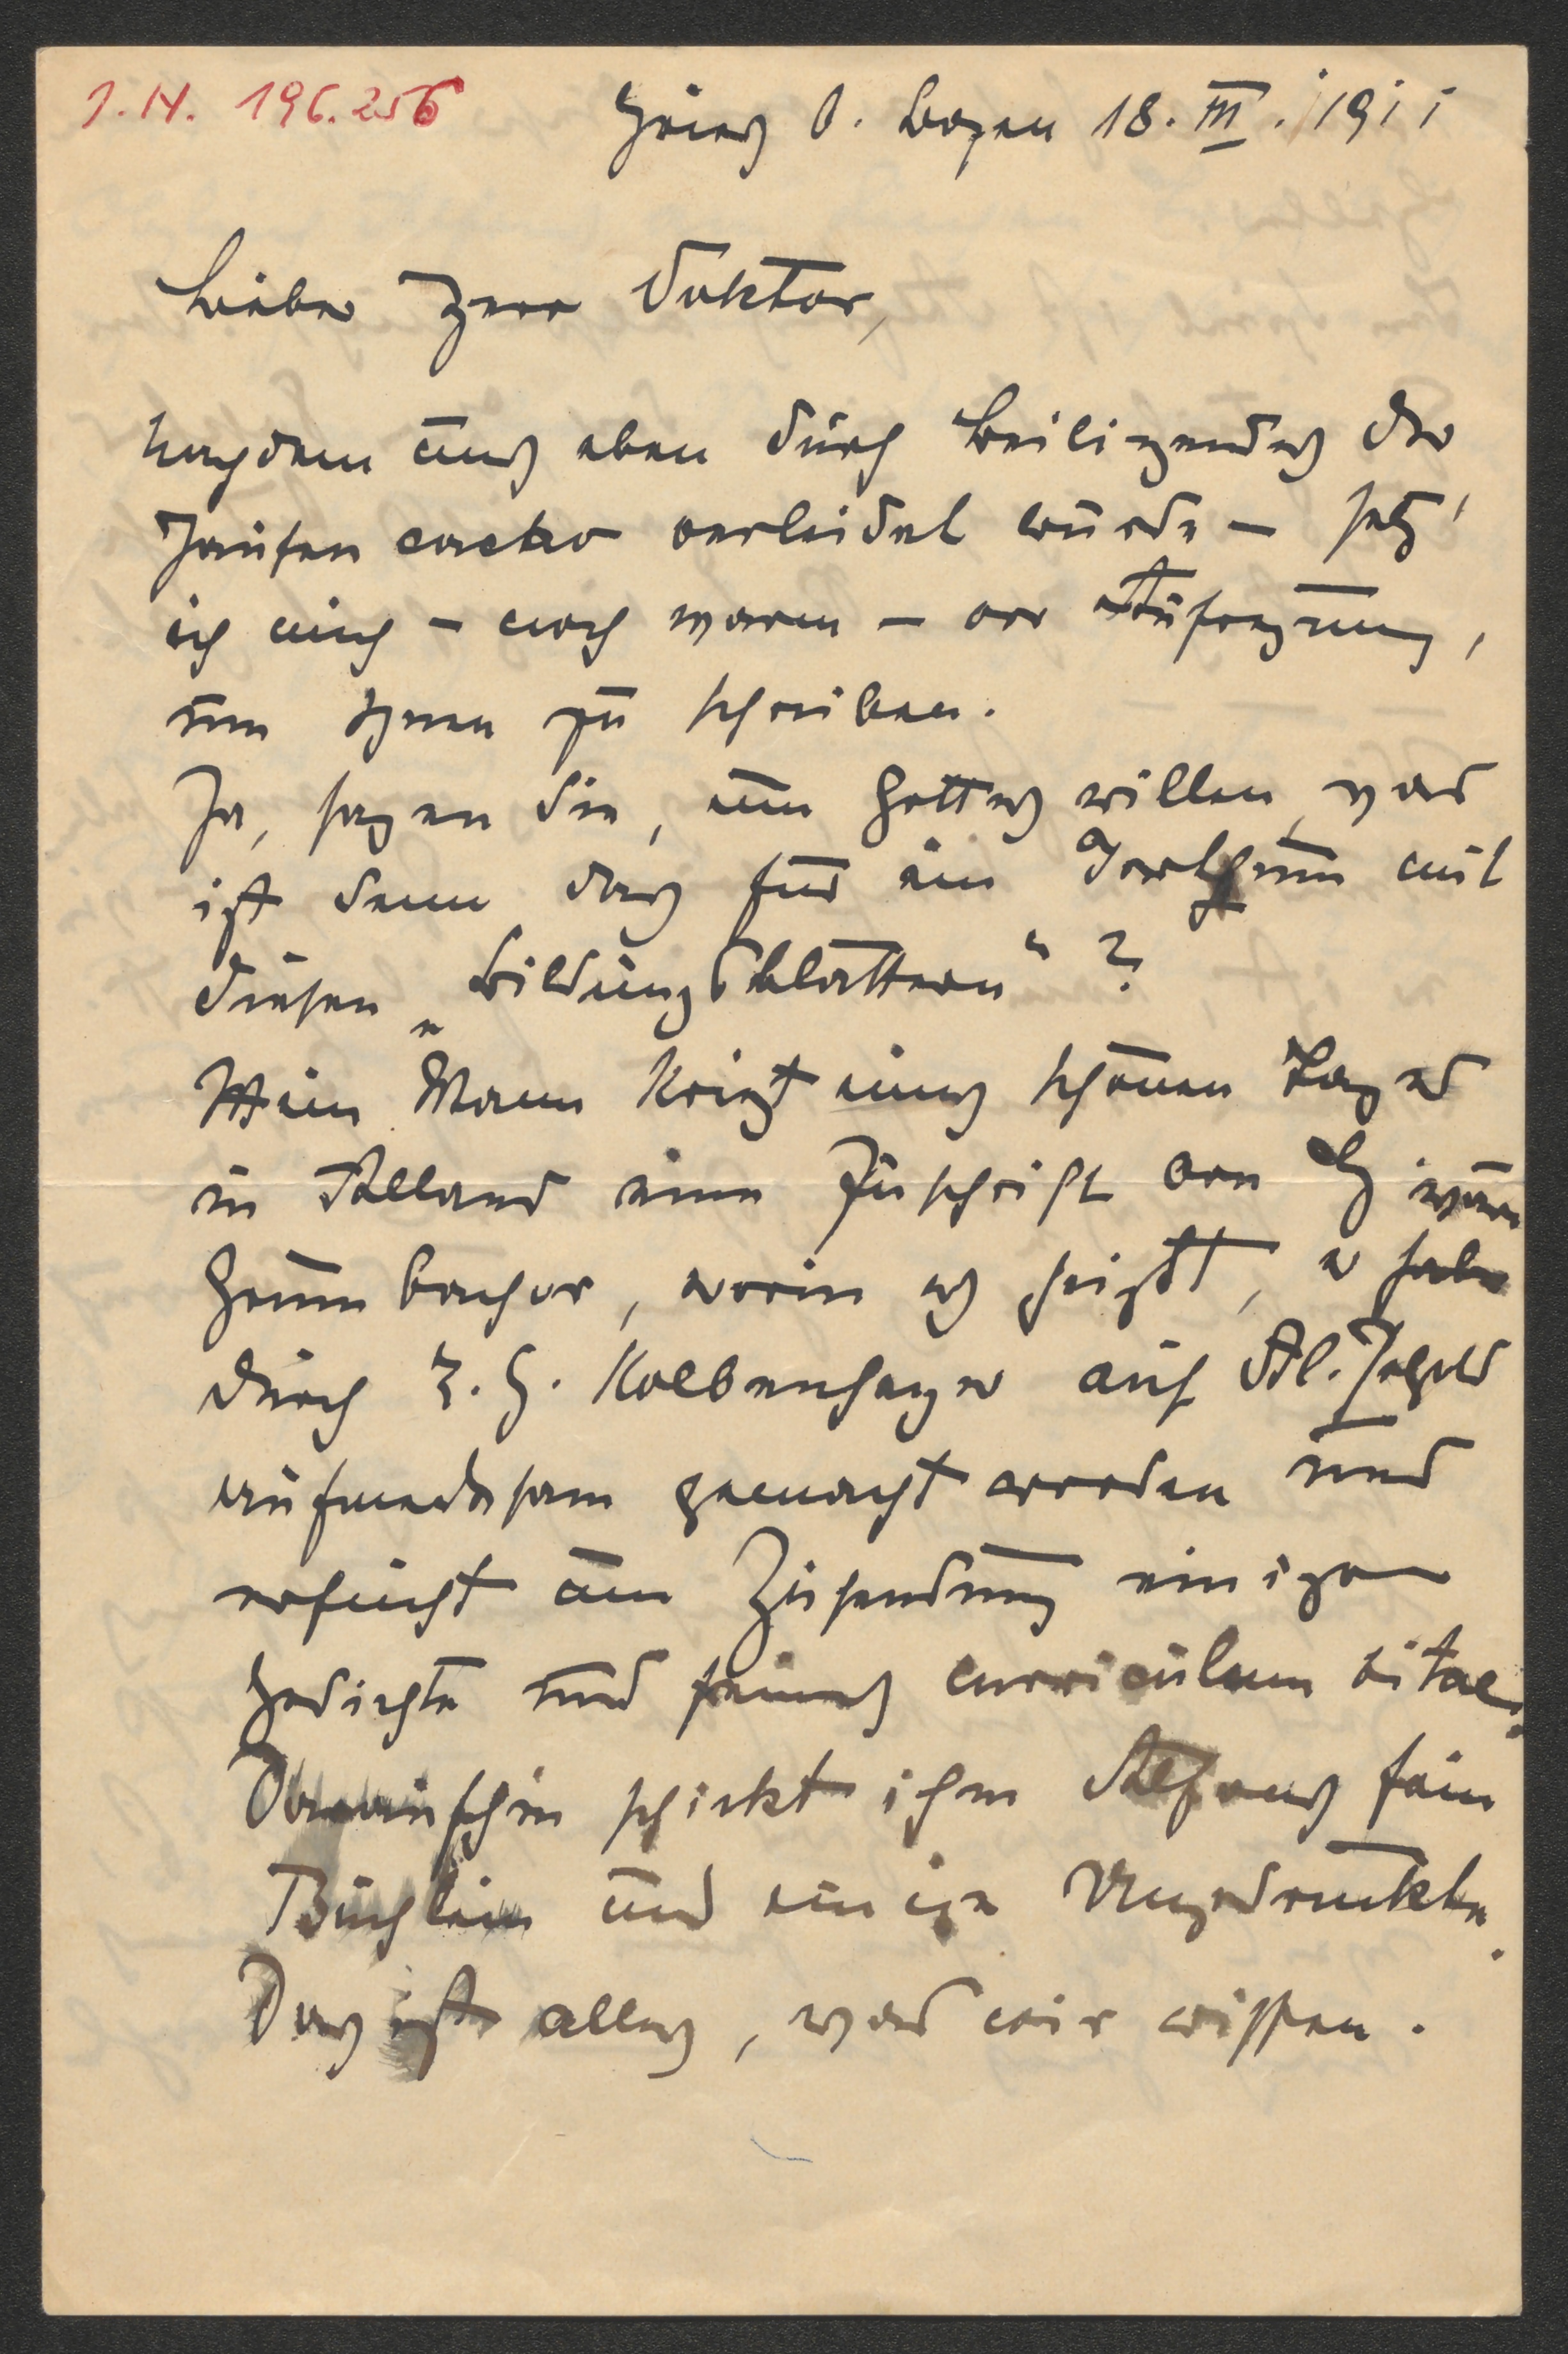 I.N. 196.256
Gries b. Bozen 18. III. 1911
Lieber Herr Doktor,
nachdem uns eben durch Beiliegendes der
Jausen verleidet wurde – setz'
ich mich – noch warm – vor Aufregung,
um Ihnen zu schreiben.
Ja, sagen Sie, um Gottes willen, was
ist denn das für ein Irrthum mit
diesen „Bildungsblättern"?
Mein Mann kriegt eines schönen Tages
in Alland eine Zuschrift von
Grumbacher, worin es heißt, er habe
durch E. G. Kolbenheyer auf Al. Petzold
aufmerksam gemacht worden und
ersucht um Zusendung einiger
Gedichte und seines curriculum vitae.
Daraufhin schickt ihm Alfons sein
Büchlein und einige Ungedruckte.
Das ist alles, was wir wissen.